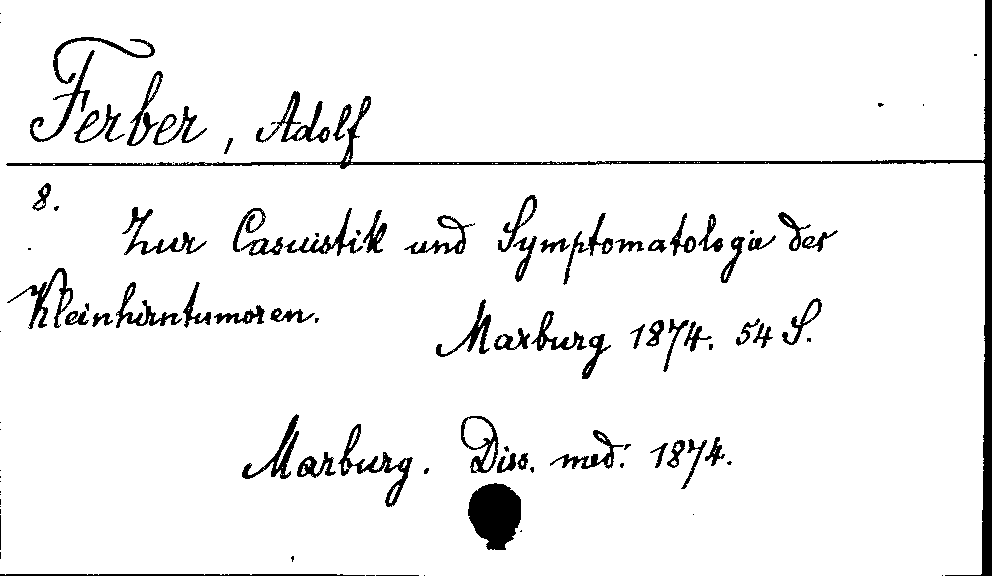 Ferber, Adolf
8.
Zur Casuistik und Symptomatologie der
Kleinhirntumoren.
Marburg 1874. 54 S.
Marburg. Diss. med. 1874.